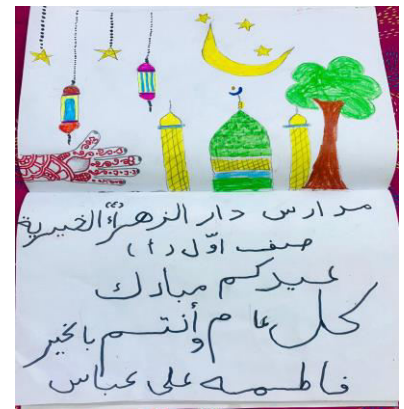 مدارس دار الزهراء(ع) الخيرية
صف اوّل (أ)
عيدكم مبارك
كل عام وأنتم بالخير
فاطمه على عباس